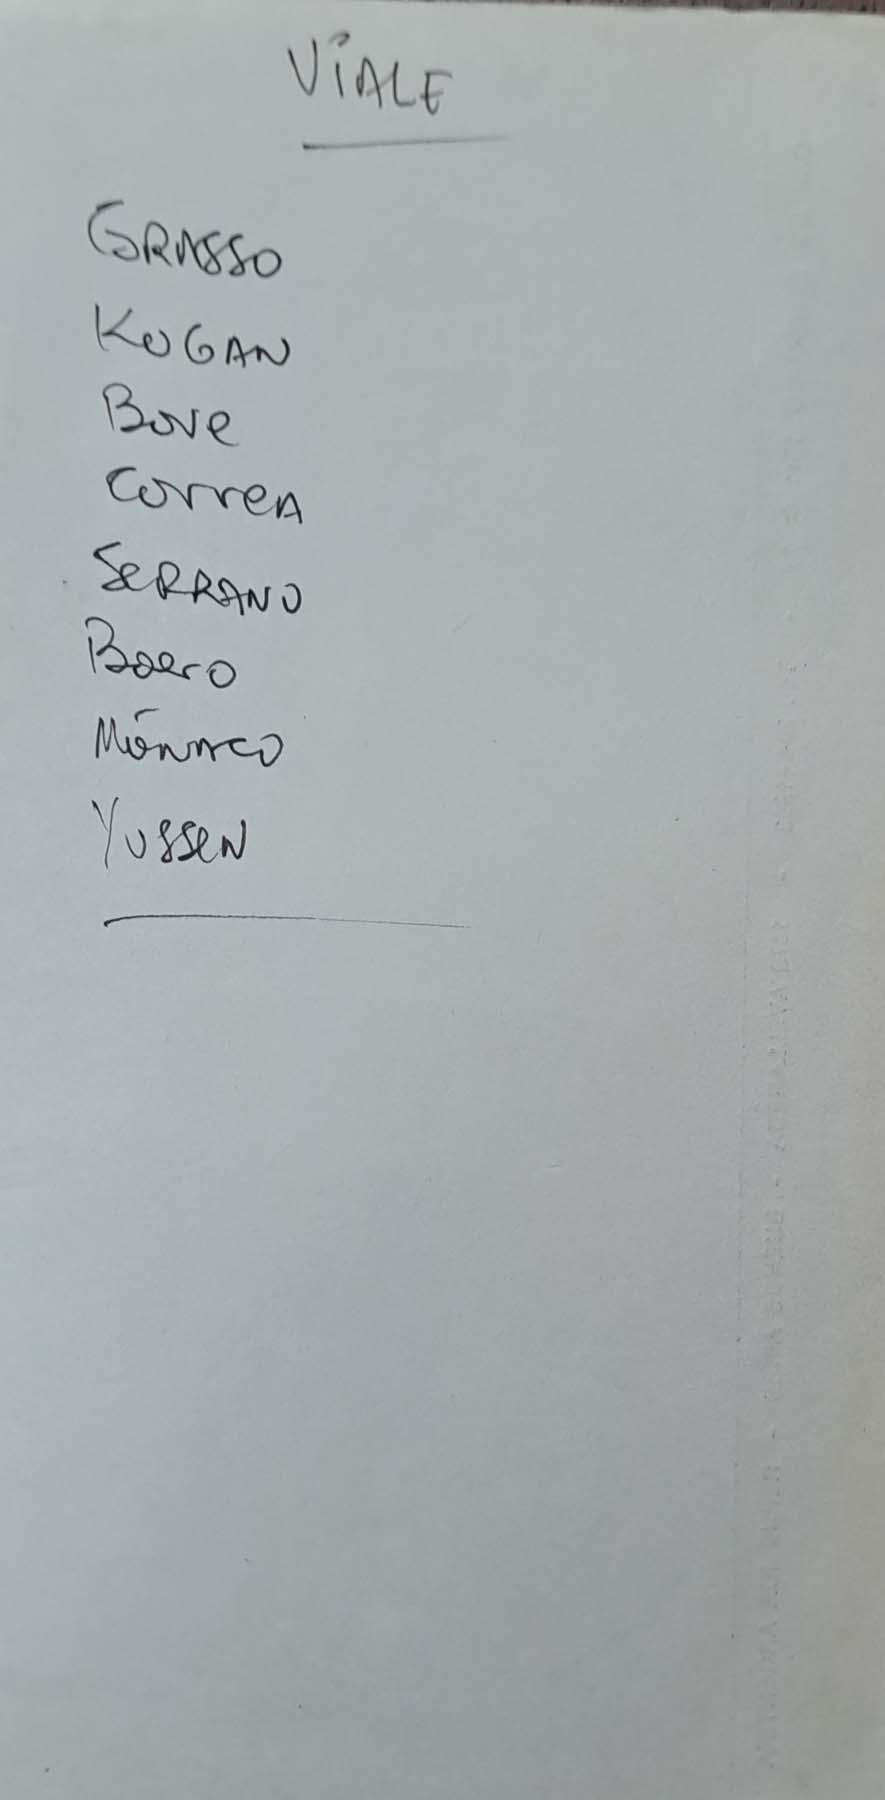 ViALE
GRASSO
KOGAN
Bove
CorreA
SeRRANO
Boero
Mónaco
YUSSEN